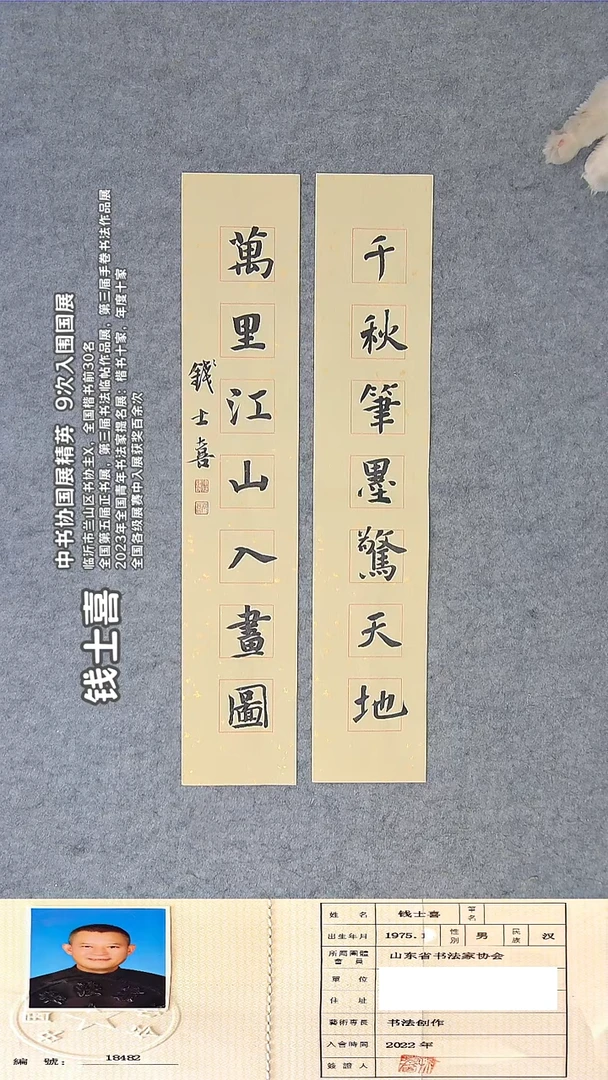 千秋筆墨驚天地
萬里江山入畫圖
錢士喜
钱士喜
中书协国展精英 9次入围国展
临沂市兰山区书协主X，全国楷书前30名
全国第五届正书展，第三届书法临帖作品展，第三届手卷书法作品展
2023年全国青年书法家提名展：楷书十家，年度十家
全国各级展赛中入展获奖百余次
編 號： 18482
姓 名 钱士喜 筆名
出生年月 1975.1 性別 男 民族 汉
所屬團體會員 山东省书法家协会
單 位
住 址
藝術專長 书法创作
入會時間 2022 年
簽證人